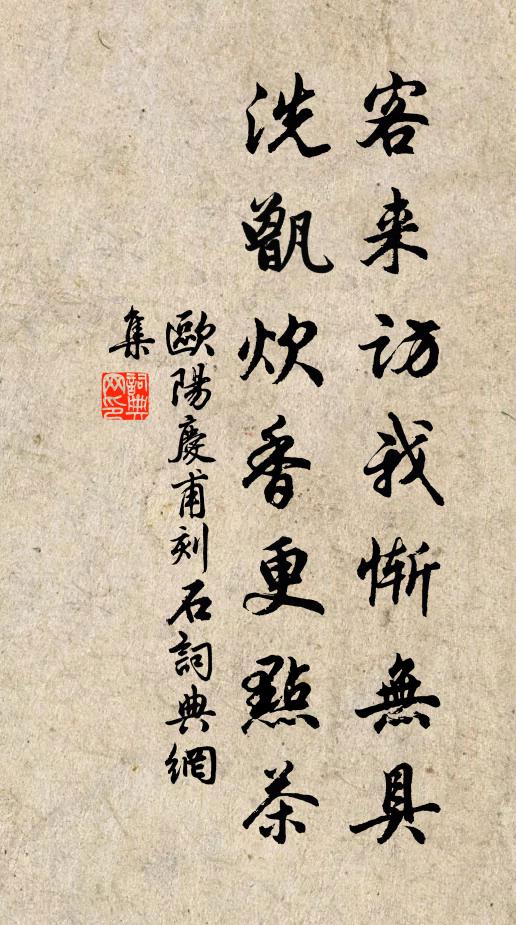 客来访我惭無具
洗甑炊香更點茶
歐陽慶甫刻石詞典網
集
詞典
网印